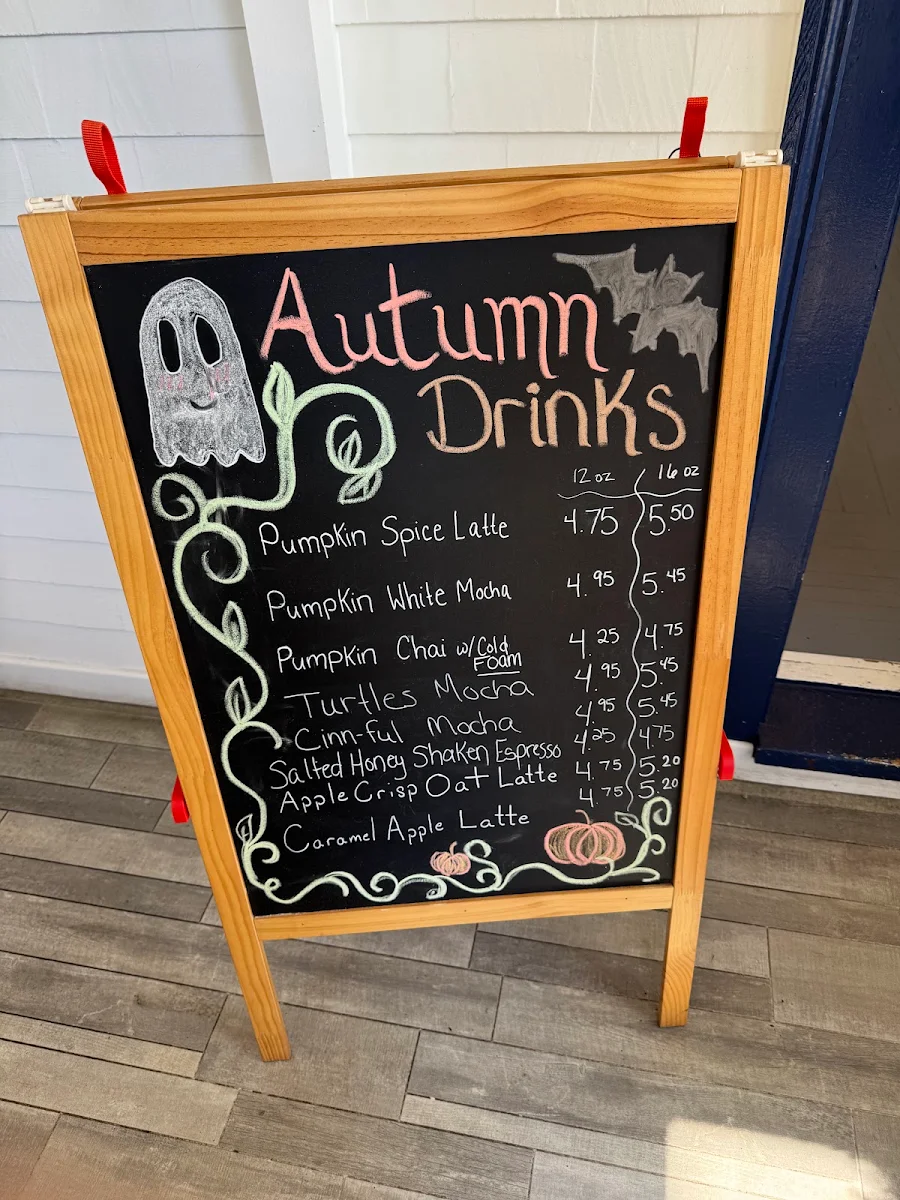 Autumn
Drinks
12 oz 16 oz
Pumpkin Spice Latte 4.75 5.50
Pumpkin White Mocha 4.95 5.45
Pumpkin Chai w/ Cold Foam 4.25 4.75
Turtles Mocha 4.95 5.45
Cinn-ful Mocha 4.95 5.45
Salted Honey Shaken Espresso 4.25 4.75
Apple Crisp Oat Latte 4.75 5.20
Caramel Apple Latte 4.75 5.20